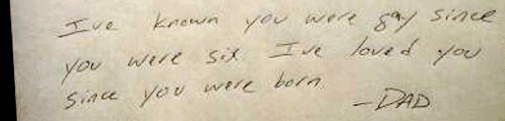 I've known you were gay since
you were six. I've loved you
since you were born.
—DAD